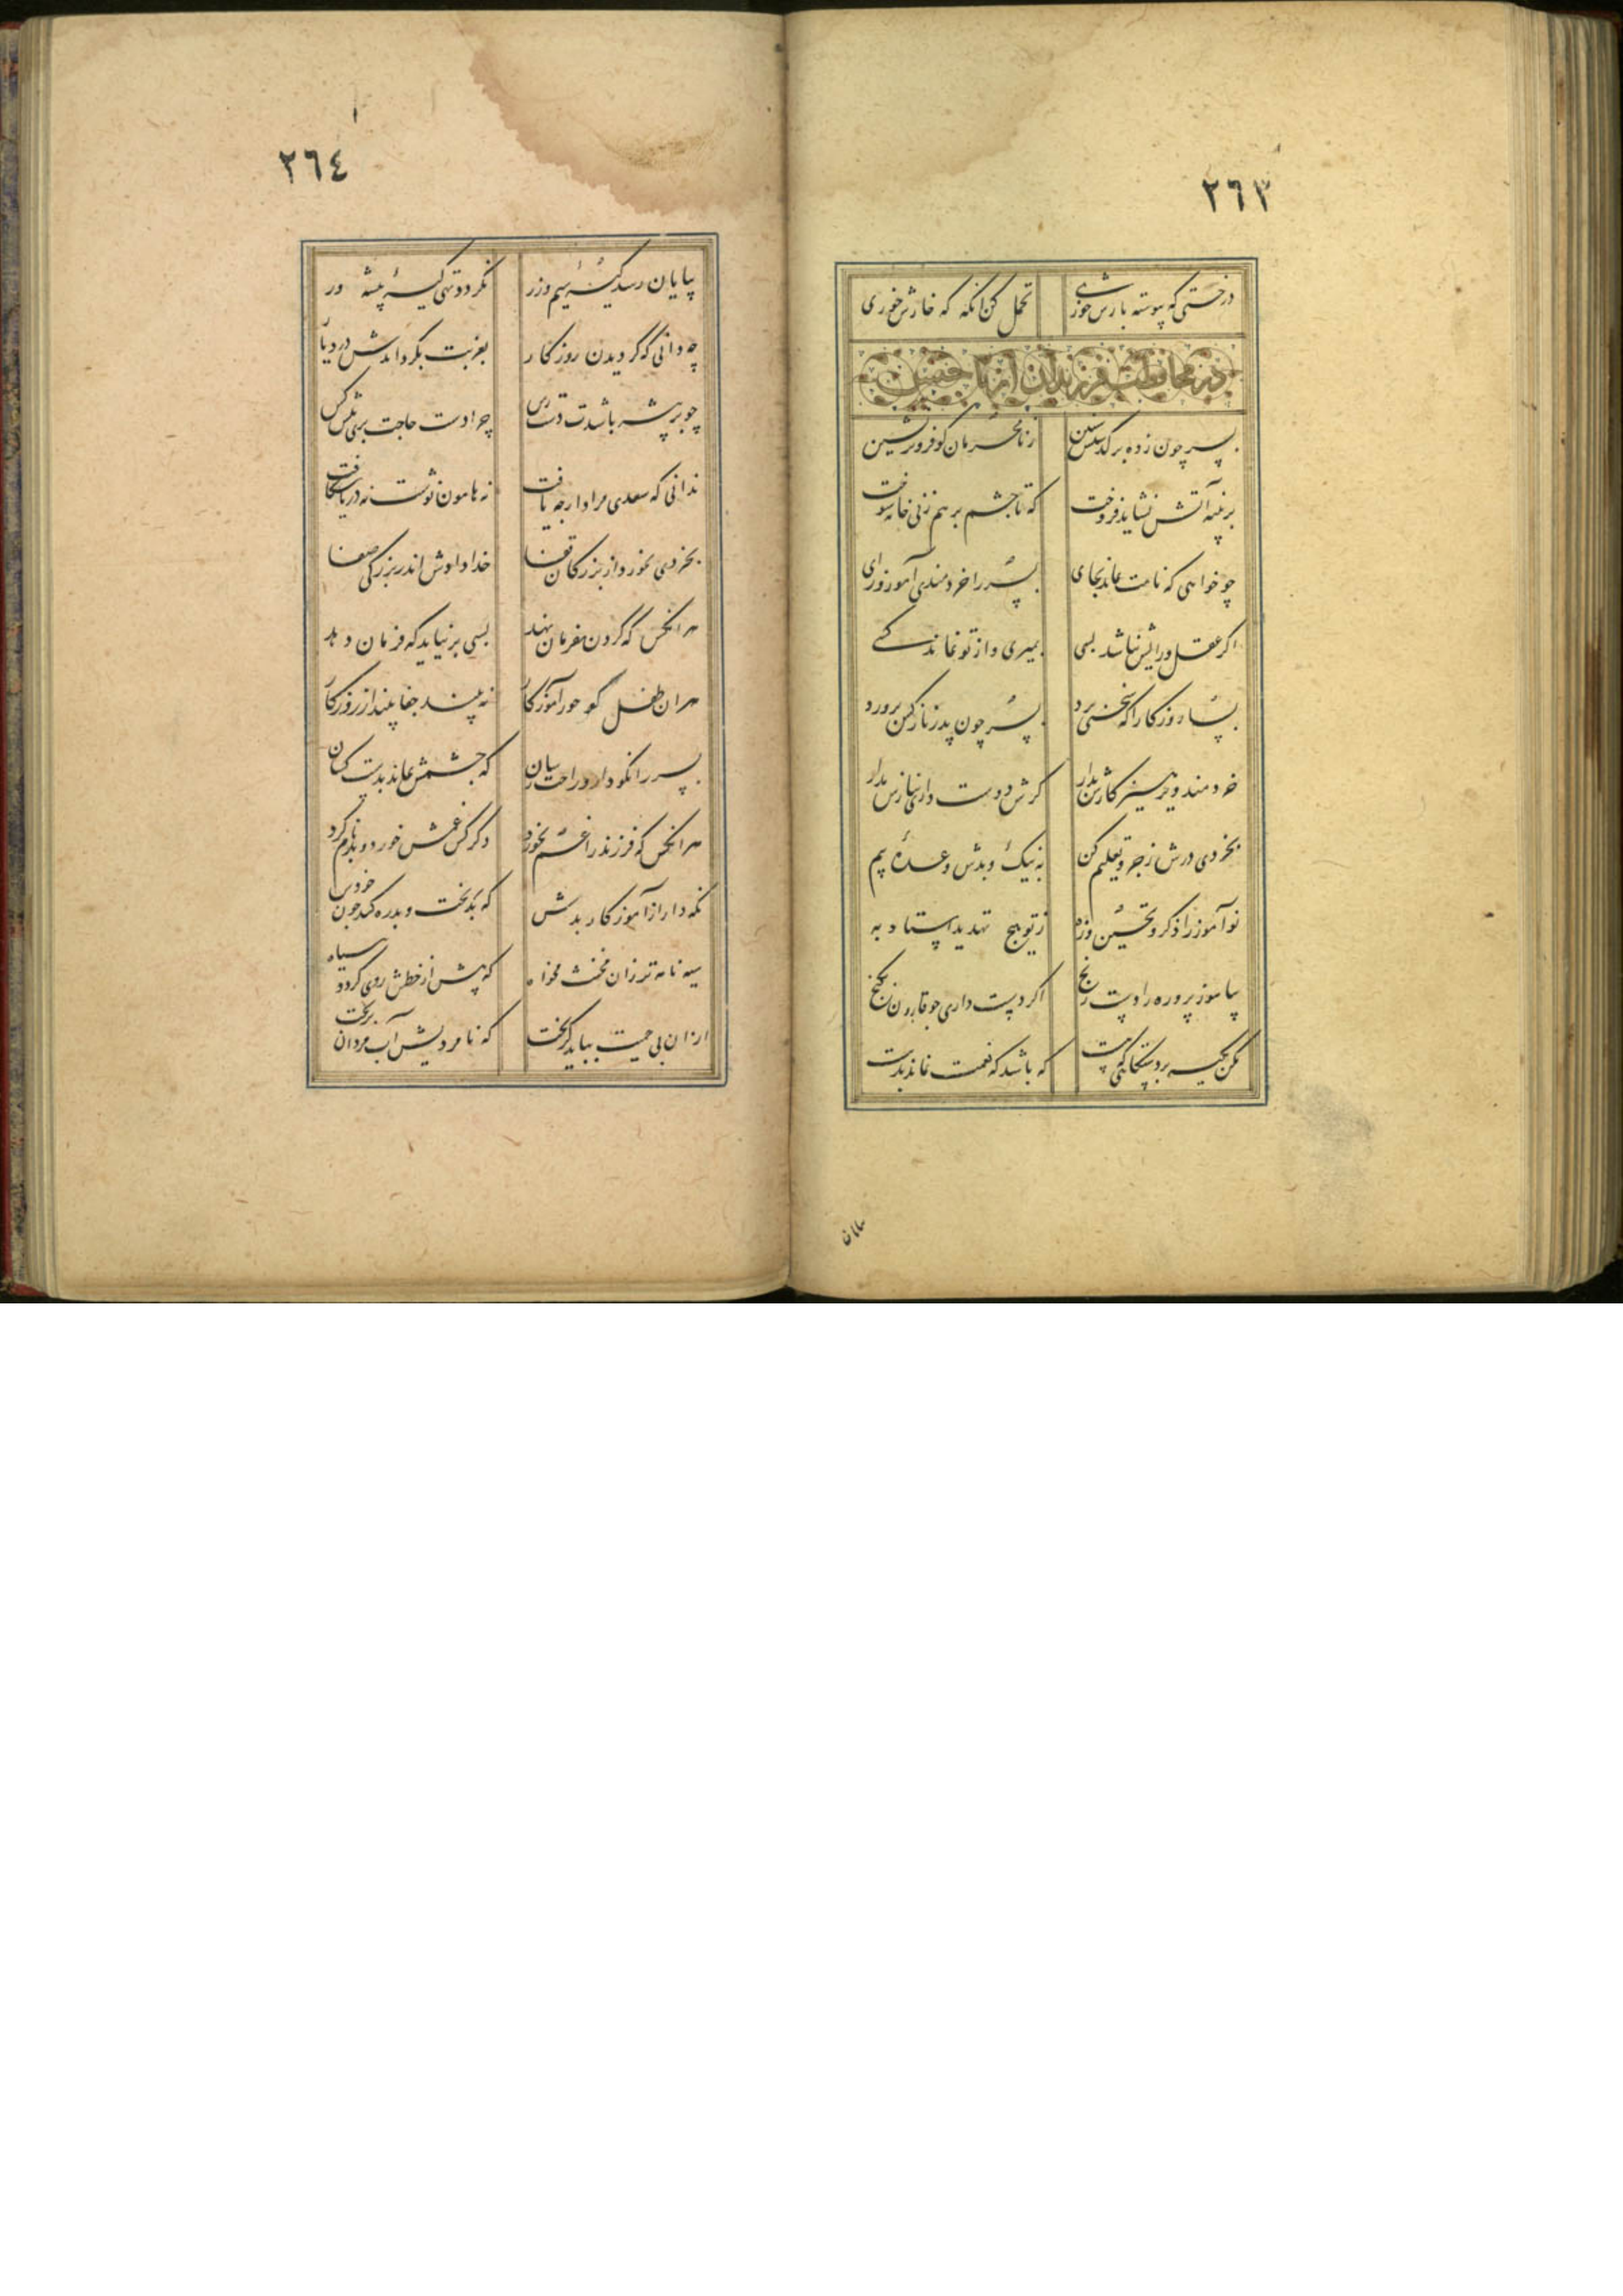 ٢٦٣
درختی که پیوسته بارش خوری تحمل کن انگه که خارش خوری
در محافظت فرزندان از ناجنس
پسر چون ز ده بر گذشتش سنین ز نامحرمان کو فروتر نشین
بر پنبه آتش نشاید فروخت که تا چشم بر هم زنی خانه سوخت
چو خواهی که نامت بماند بجای پسر را خردمندی آموز و رای
اگر عقل و رایش نباشد بسی بمیری و از تو نماند کسی
بسا روزکارا که سختی برد پسر چون پدر نازکش پرورد
خردمند و پرهیزکارش بدار گرش دوست داری بنازش مدار
بخردی درش زجر و تعلیم کن به نیک و بدش وعده و بیم
نوآموز را ذکر و تحسین و زه ز توبیخ تهدید استاد به
بیاموز پرورده را دست رنج اگر دست داری چو قارون بگنج
مکن تکیه بر دستگاهی که هست که باشد که نعمت نماند بدست
پایان
٢٦٤
بپایان رسد کیسهٔ سیم و زر نگردد تهی کیسهٔ پیشه ور
چه دانی که گردیدن روزکار بغربت بگرداندش در دیار
چو بر پیشه باشدت دست رس چرا دست حاجت بری پیش کس
ندانی که سعدی مراد از چه یافت نه هامون نوشت نه دریا شکافت
بخردی بخورد از بزرکان قفا خدا دادش اندر بزرگی صفا
هر انکس که گردن بفرمان نهد بسی بر نیاید که فرمان دهد
هر ان طفل کو جور آموزکار نه بیند جفا بیند از روزکار
پسر را نکو دار و راحت رسان که چشمش نماند بدست کسان
هر انکس که فرزند را غم نخورد دگر کس غمش خورد و بدنام کرد
نگه دار از آموزکار بدش که بدبخت و بدره کند چون خودش
سیه نامه تر زان مخنث مخواه که پیش از خطش روی گردد سیاه
از ان بی حمیت بباید گریخت که نامردیش آب مردان بریخت